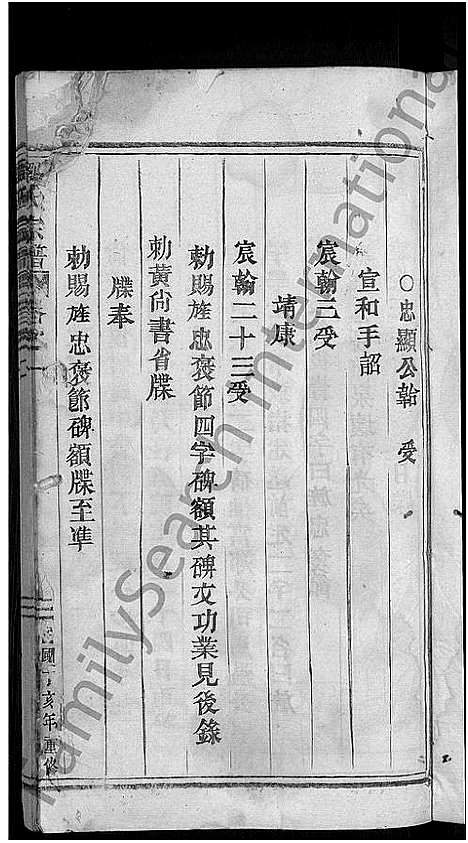 ○忠顯公韐 受
宣和手詔
宸翰三受
靖康
宸翰二十三受
勅賜旌忠褒節四字碑額其碑文功業見後錄
勅黃尚書省牒
牒奉
勅賜旌忠褒節碑額牒至準
氏宗譜
民國丁亥年重修
FamilySearch International